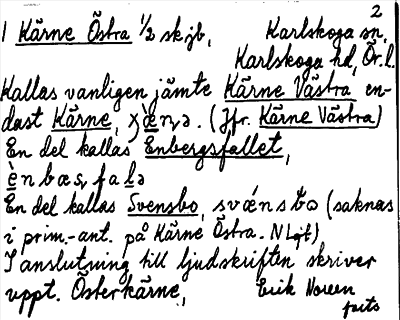 2
1 Kärne Östra 1/2 skjb, Karlskoga sn,
Karlskoga hd, Ör. l.
Kallas vanligen jämte Kärne Västra en-
dast Kärne, (Jfr. Kärne Västra)
En del kallas Enbergsfallet,
En del kallas Svensbo, (saknas
i prim.-ant. på Kärne Östra. N Lgt)
I anslutning till ljudskriften skriver
uppt. Österkärne, Erik Noreen
forts